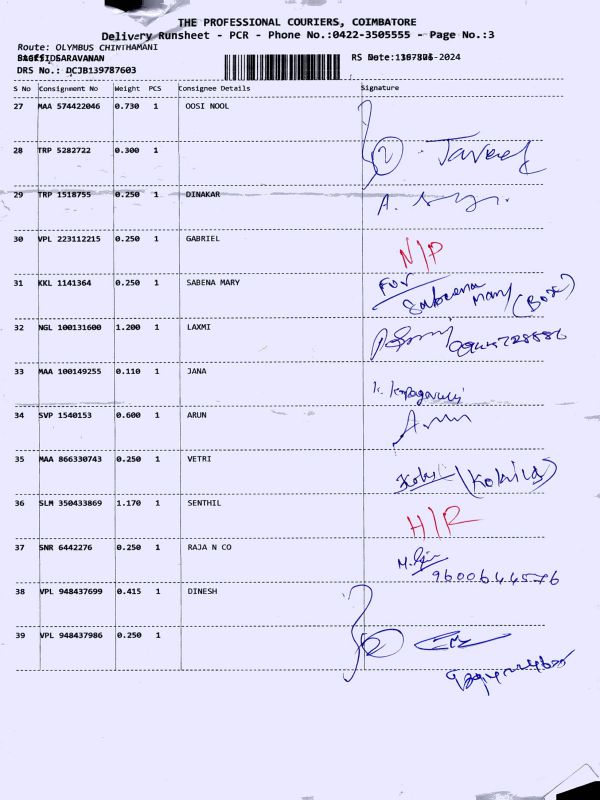 THE PROFESSIONAL COURIERS, COIMBATORE
Delivery Runsheet - PCR - Phone No.:0422-3505555 - Page No.:3
Route: OLYMBUS CHINTHAMANI
SARAVANAN RS -2024
DRS No.: DCJB139787603
S No Consignment No Weight PCS Consignee Details Signature
27 MAA 574422046 0.730 1 OOSI NOOL
28 TRP 5282722 0.300 1
29 TRP 1518755 0.250 1 DINAKAR
30 VPL 223112215 0.250 1 GABRIEL N/P
31 KKL 1141364 0.250 1 SABENA MARY For
Sabeena Mary (Bose)
32 NGL 100131600 1.200 1 LAXMI
33 MAA 100149255 0.110 1 JANA
34 SVP 1540153 0.600 1 ARUN Arun
35 MAA 866330743 0.250 1 VETRI (Kokila)
36 SLM 350433869 1.170 1 SENTHIL H/R
37 SNR 6442276 0.250 1 RAJA N CO
9600644576
38 VPL 948437699 0.415 1 DINESH
39 VPL 948437986 0.250 1